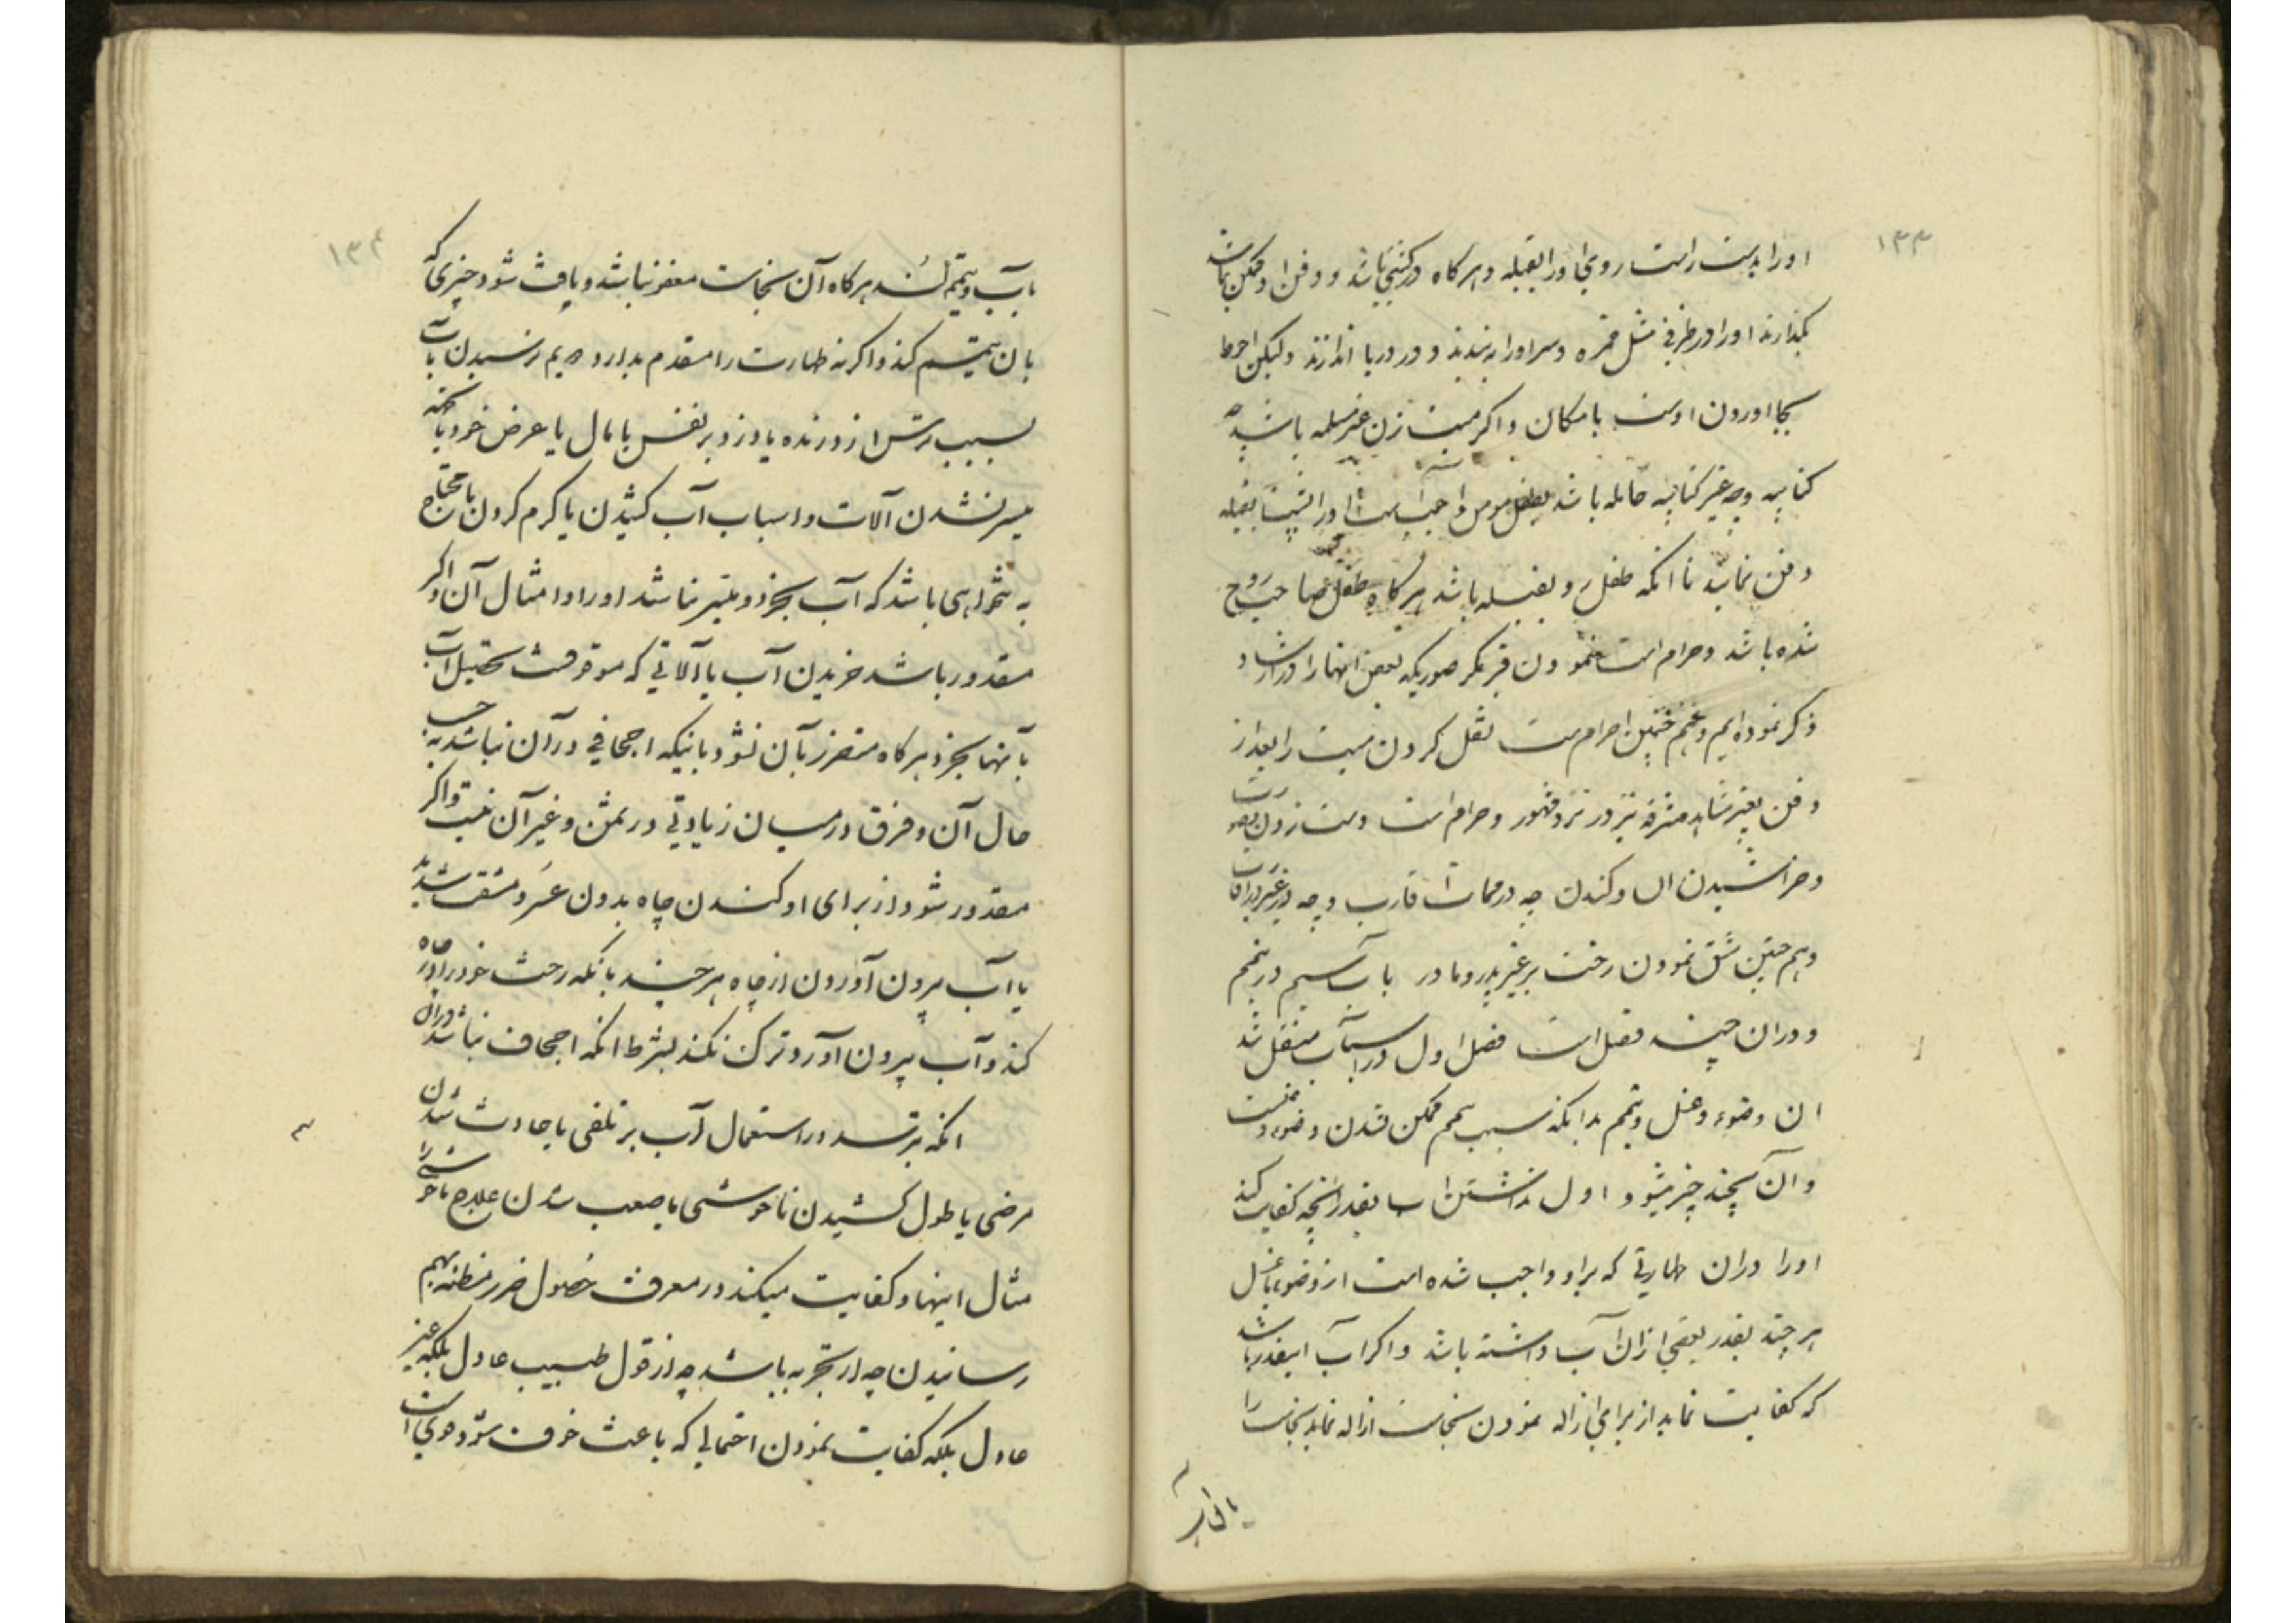 ۱۳۳
اورا بدست راست روی اورا بقبله و هر کاه در کشتی باشد و دفن او ممکن نباشد
بگذارند اورا در ظرفی مثل خمره و سر اورا به بندند و در دریا اندازند و لیکن احوط
بجا اوردن اوست بامکان و اکر میت زن غیر مسلمه باشد چه
کتابیه و چه غیر کتابیه حامله باشد بطفل مومن واجب است اورا پشت بقبله
دفن نمایند تا انکه طفل رو بقبله باشد هر کاه طفل صاحب روح
شده باشد و حرام است نمودن قبر مکر صوریکه بعض انها را در ارشاد
ذکر نموده ایم و هم چنین حرام ست نقل کردن میت را بعد از
دفن بغیر مشاهد مشرفه نیز در نزد مشهور و حرام است دست زدن بصورت
و خراشیدن ان و کندن چه در ممات اقارب و چه در غیر اقارب
و هم چنین شق نمودن رخت بر غیر پدر و مادر باب سیم در تیمم
و در ان چند فصل است فصل اول در اسباب منتقل شد
ان وضوء و غسل و تیمم بدانکه سبب تیمم ممکن نشدن وضوء و غسلست
و آن بچند چیز میشود اول نداشتن آب بقدر انچه کفایت کند
اورا دران طهارتی که بر او واجب شده است از وضوء یا غسل
هر چند بقدر بعضی ازان آب داشته باشد و اکر آب اینقدر باشد
که کفایت نماید از برای ازاله نمودن نجاست ازاله نماید نجاست را
۱۳۴
بآب و تیمم کند هر کاه آن نجاست معفو نباشد و یافت شود چیزی که
بان تیمم کند و اکر نه طهارت را مقدم بدارد دویم نرسیدن بآب
بسبب ترس از درنده یا دزد بر نفس یا مال یا عرض خود یا بجهة
میسر نشدن آلات و اسباب آب کشیدن یا کرم کردن یا محتاج
به تنخواهی باشد که آب بخرد و میسر نباشد اورا و امثال آن و اکر
مقدور باشد خریدن آب یا آلاتی که موقوفست تحصیل آب
بآنها بخرد هر کاه متضرر بآن نشود باینکه اجحافی در آن نباشد بحسب
حال آن و فرق در میان زیادتی در ثمن و غیر آن نیست و اکر
مقدور شود از برای او کندن چاه بدون عسر و مشقت شدید
یا آب بیرون آوردن از چاه هر چند بانکه رخت خود را در چاه
کند و آب بیرون آورد ترک نکند بشرط انکه اجحاف نباشد دران
۳ انکه بترسد در استعمال آب بر تلفی یا حادث شدن
مرضی یا طول کشیدن ناخوشی یا صعب شدن علاج ناخوشی یا
مثال اینها و کفایت میکند در معرفت حصول ضرر مظنه بهم
رسانیدن چه از تجربه باشد چه از قول طبیب عادل بلکه غیر
عادل بلکه کفایت نمودن احتمالی که باعث خوف شود قوی است